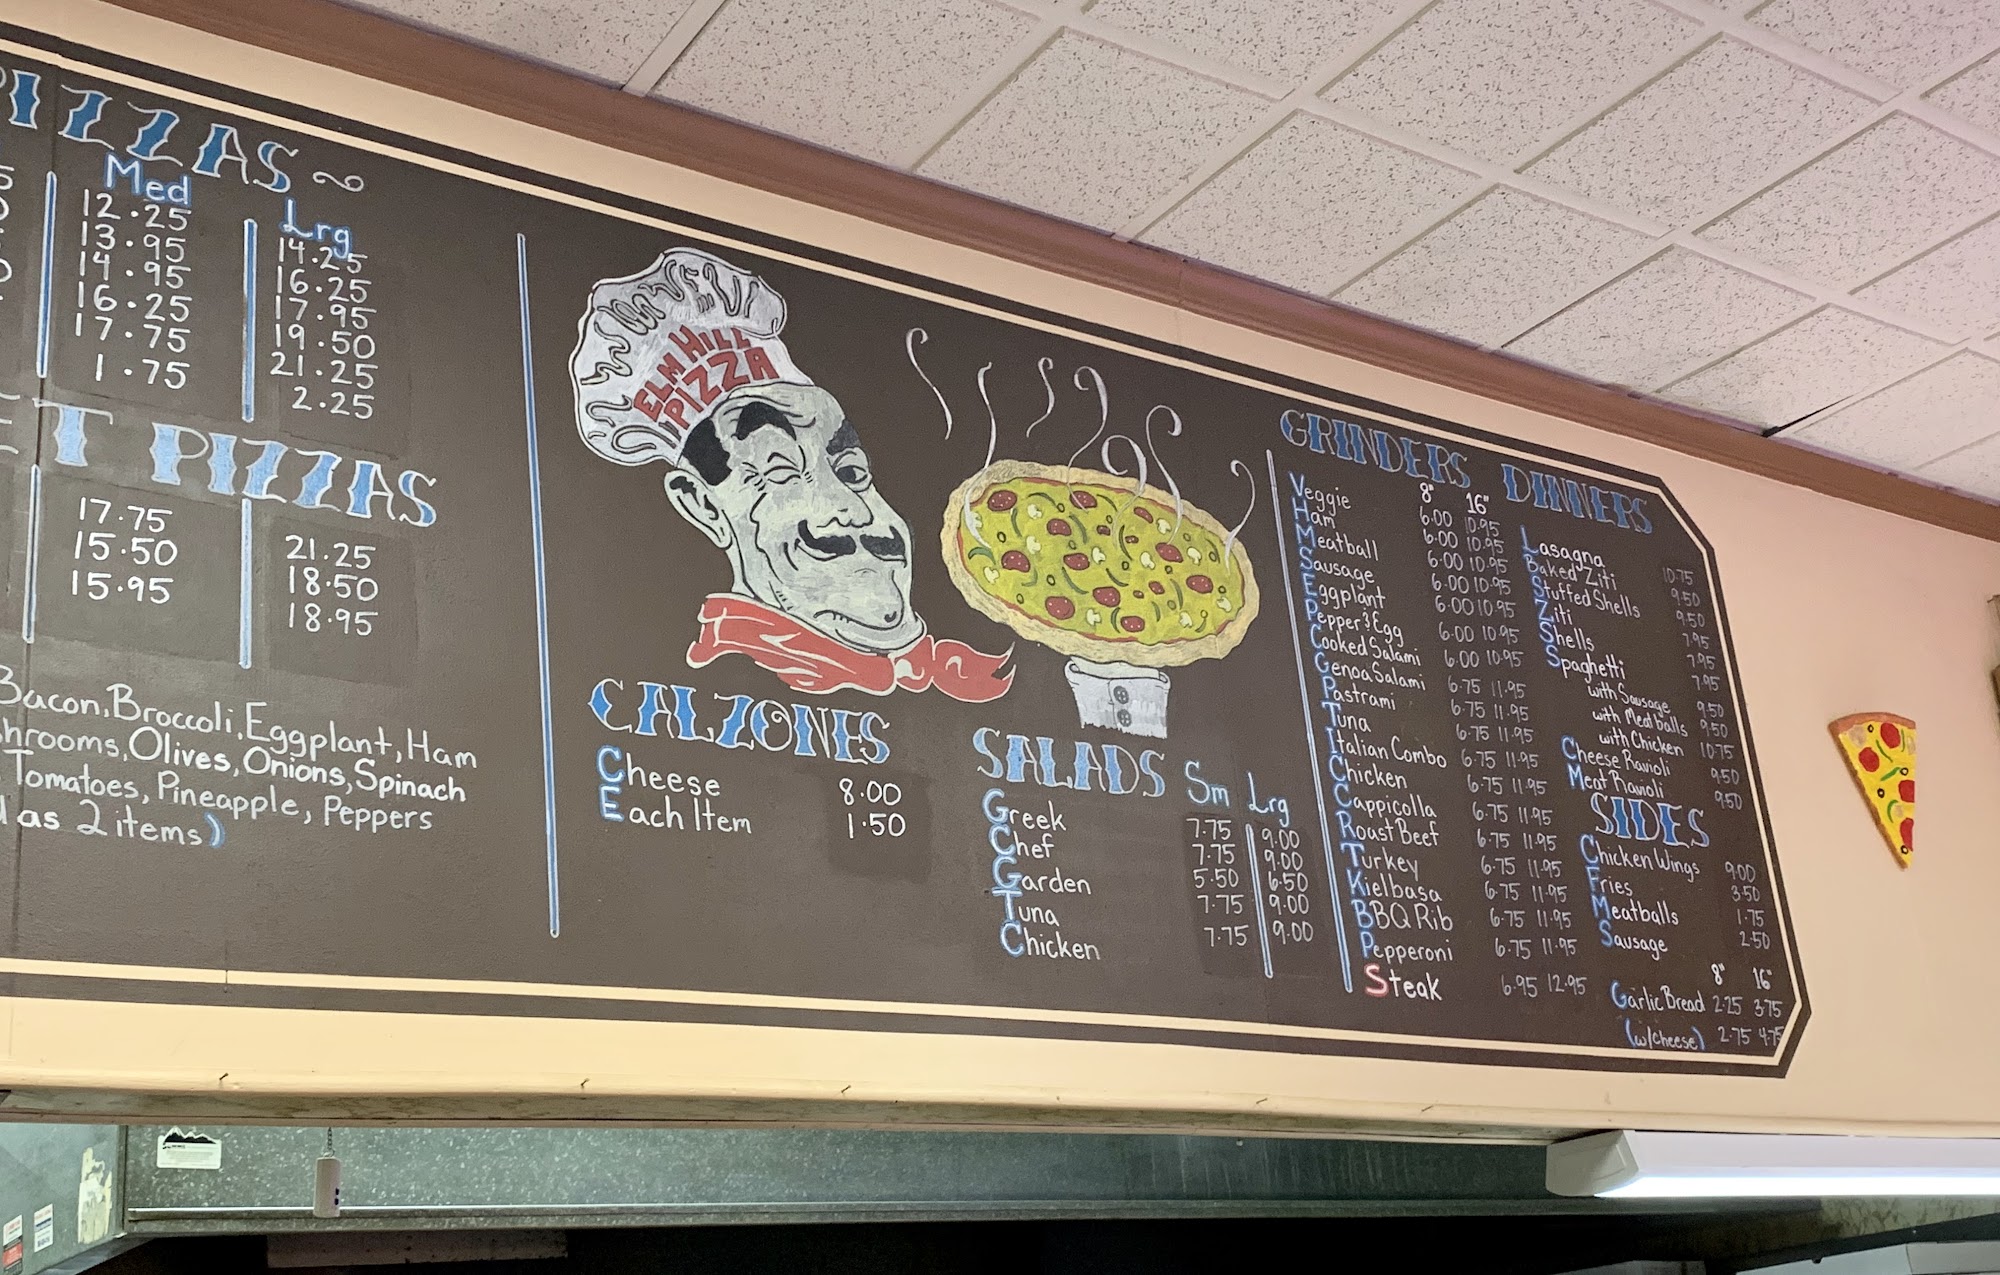 PIZZAS
Med Lrg
12.25 14.25
13.95 16.25
14.95 17.95
16.25 19.50
17.75 21.25
1.75 2.25
T PIZZAS
17.75 21.25
15.50 18.50
15.95 18.95
Bacon, Broccoli, Eggplant, Ham
Olives, Onions, Spinach
Tomatoes, Pineapple, Peppers
as 2 items)
ELM HILL
PIZZA
CALZONES
Cheese 8.00
Each Item 1.50
SALADS Sm Lrg
Greek 7.75 9.00
Chef 7.75 9.00
Garden 5.50 6.50
Tuna 7.75 9.00
Chicken 7.75 9.00
GRINDERS
8" 16"
Veggie 6.00 10.95
Ham 6.00 10.95
Meatball 6.00 10.95
Sausage 6.00 10.95
Eggplant 6.00 10.95
Pepper & Egg 6.00 10.95
Cooked Salami 6.00 10.95
Genoa Salami 6.75 11.95
Pastrami 6.75 11.95
Tuna 6.75 11.95
Italian Combo 6.75 11.95
Chicken 6.75 11.95
Cappicolla 6.75 11.95
Roast Beef 6.75 11.95
Turkey 6.75 11.95
Kielbasa 6.75 11.95
BBQ Rib 6.75 11.95
Pepperoni 6.75 11.95
Steak 6.95 12.95
DINNERS
Lasagna 10.75
Baked Ziti 9.50
Stuffed Shells 9.50
Ziti 7.95
Shells 7.95
Spaghetti 7.95
with Sausage 9.50
with Meatballs 9.50
with Chicken 10.75
Cheese Ravioli 9.50
Meat Ravioli 9.50
SIDES
Chicken Wings 9.00
Fries 3.50
Meatballs 1.75
Sausage 2.50
8" 16"
Garlic Bread 2.25 3.75
(w/cheese) 2.75 4.75